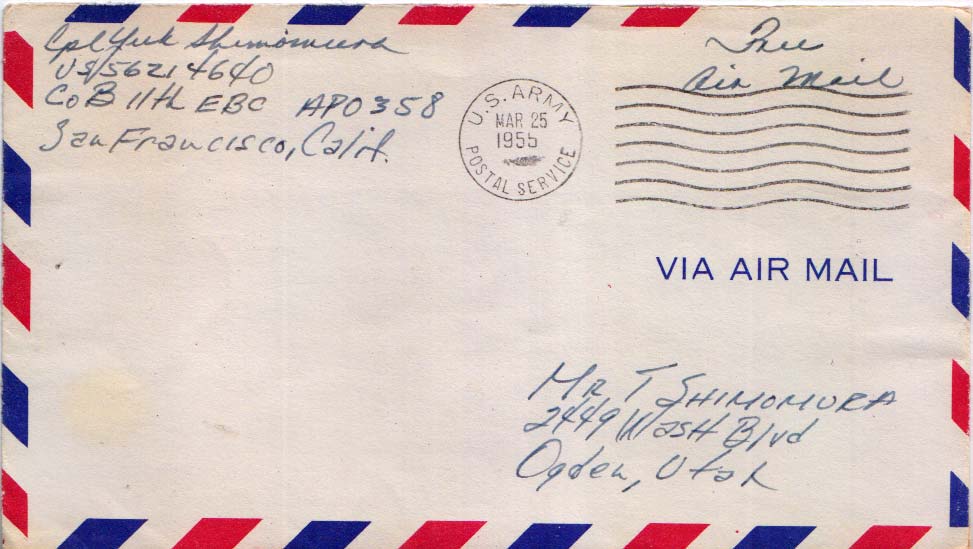 Cpl Yuk Shimomura
US56214640
Co B 11th EBC APO 358
San Francisco, Calif.
U.S. ARMY
MAR 25
1955
POSTAL SERVICE
Free
Air Mail
VIA AIR MAIL
MR T SHIMOMURA
2449 WASH Blvd
Ogden, Utah